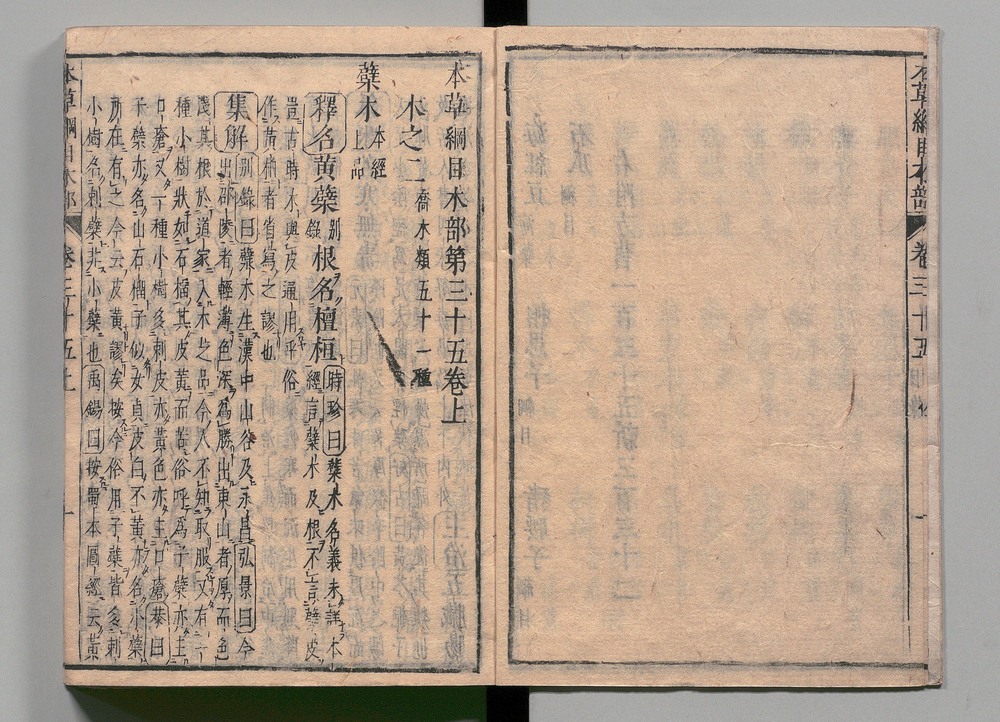 本草綱目木部 卷三十五
本草綱目木部第三十五卷上
木之二 喬木類五十一種
蘗木 本經上品
釋名黃蘗別錄根名檀桓時珍曰蘗木名義未詳本
經言蘗木及根不言蘗皮
豈古時木與皮通用乎俗
作黃栢者省寫之謬也
集解別錄曰蘗木生漢中山谷及永昌弘景曰今
出邵陵者輕薄色深爲勝出東山者厚而色
淺其根於道家入木芝品今人不知取服又有一
種小樹狀如石榴其皮黃而苦俗呼爲子蘗亦主
口瘡又一種小樹多刺皮亦黃色亦主口瘡恭曰
子蘗亦名山石榴子似女貞皮白不黃亦名小蘗
所在有之今云皮黃謬矣按今俗用子蘗皆多刺
小樹名刺蘗非小蘗也禹錫曰按蜀本圖經云黃
本草綱目木部 卷三十五上 一